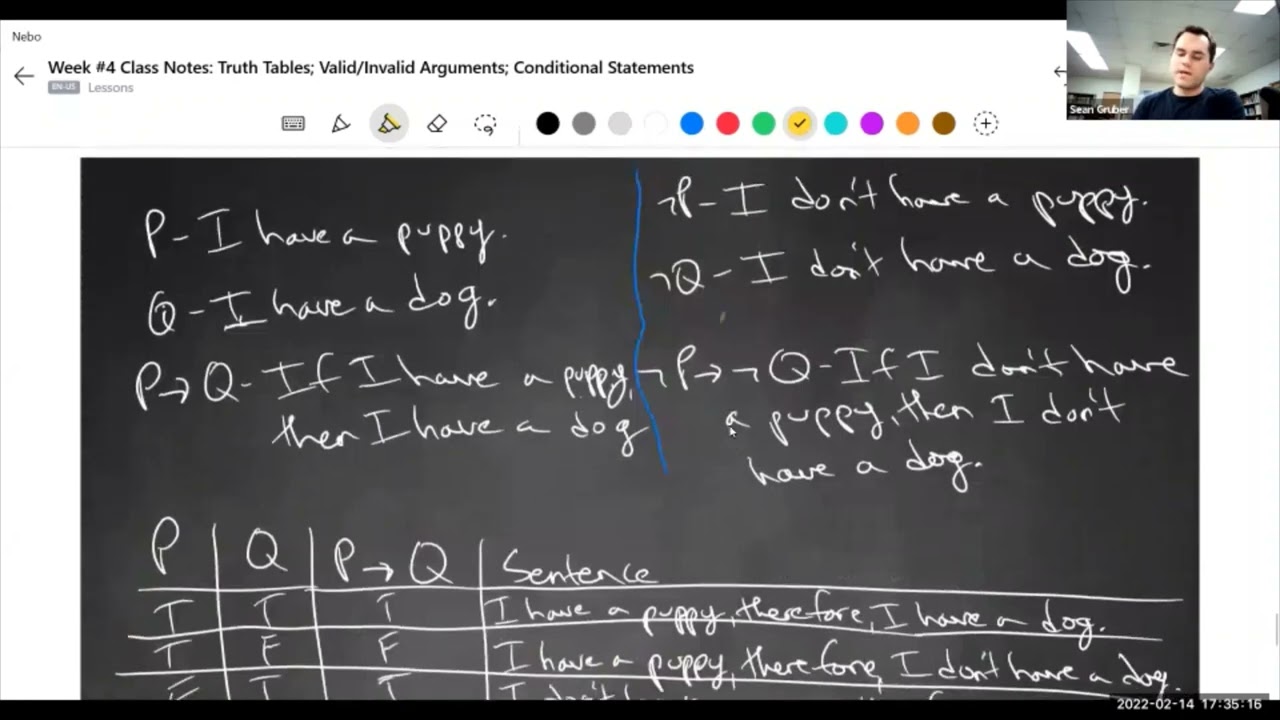 Nebo
Week #4 Class Notes: Truth Tables; Valid/Invalid Arguments; Conditional Statements
EN-US Lessons
Sean Gruber
P - I have a puppy.
Q - I have a dog.
P → Q - If I have a puppy,
then I have a dog
¬P - I don't have a puppy.
¬Q - I don't have a dog.
¬P → ¬Q - If I don't have
a puppy, then I don't
have a dog.
P Q P → Q Sentence
T T T I have a puppy, therefore, I have a dog.
T F F I have a puppy, therefore, I don't have a dog.
F T T I don't
2022-02-14 17:35:16